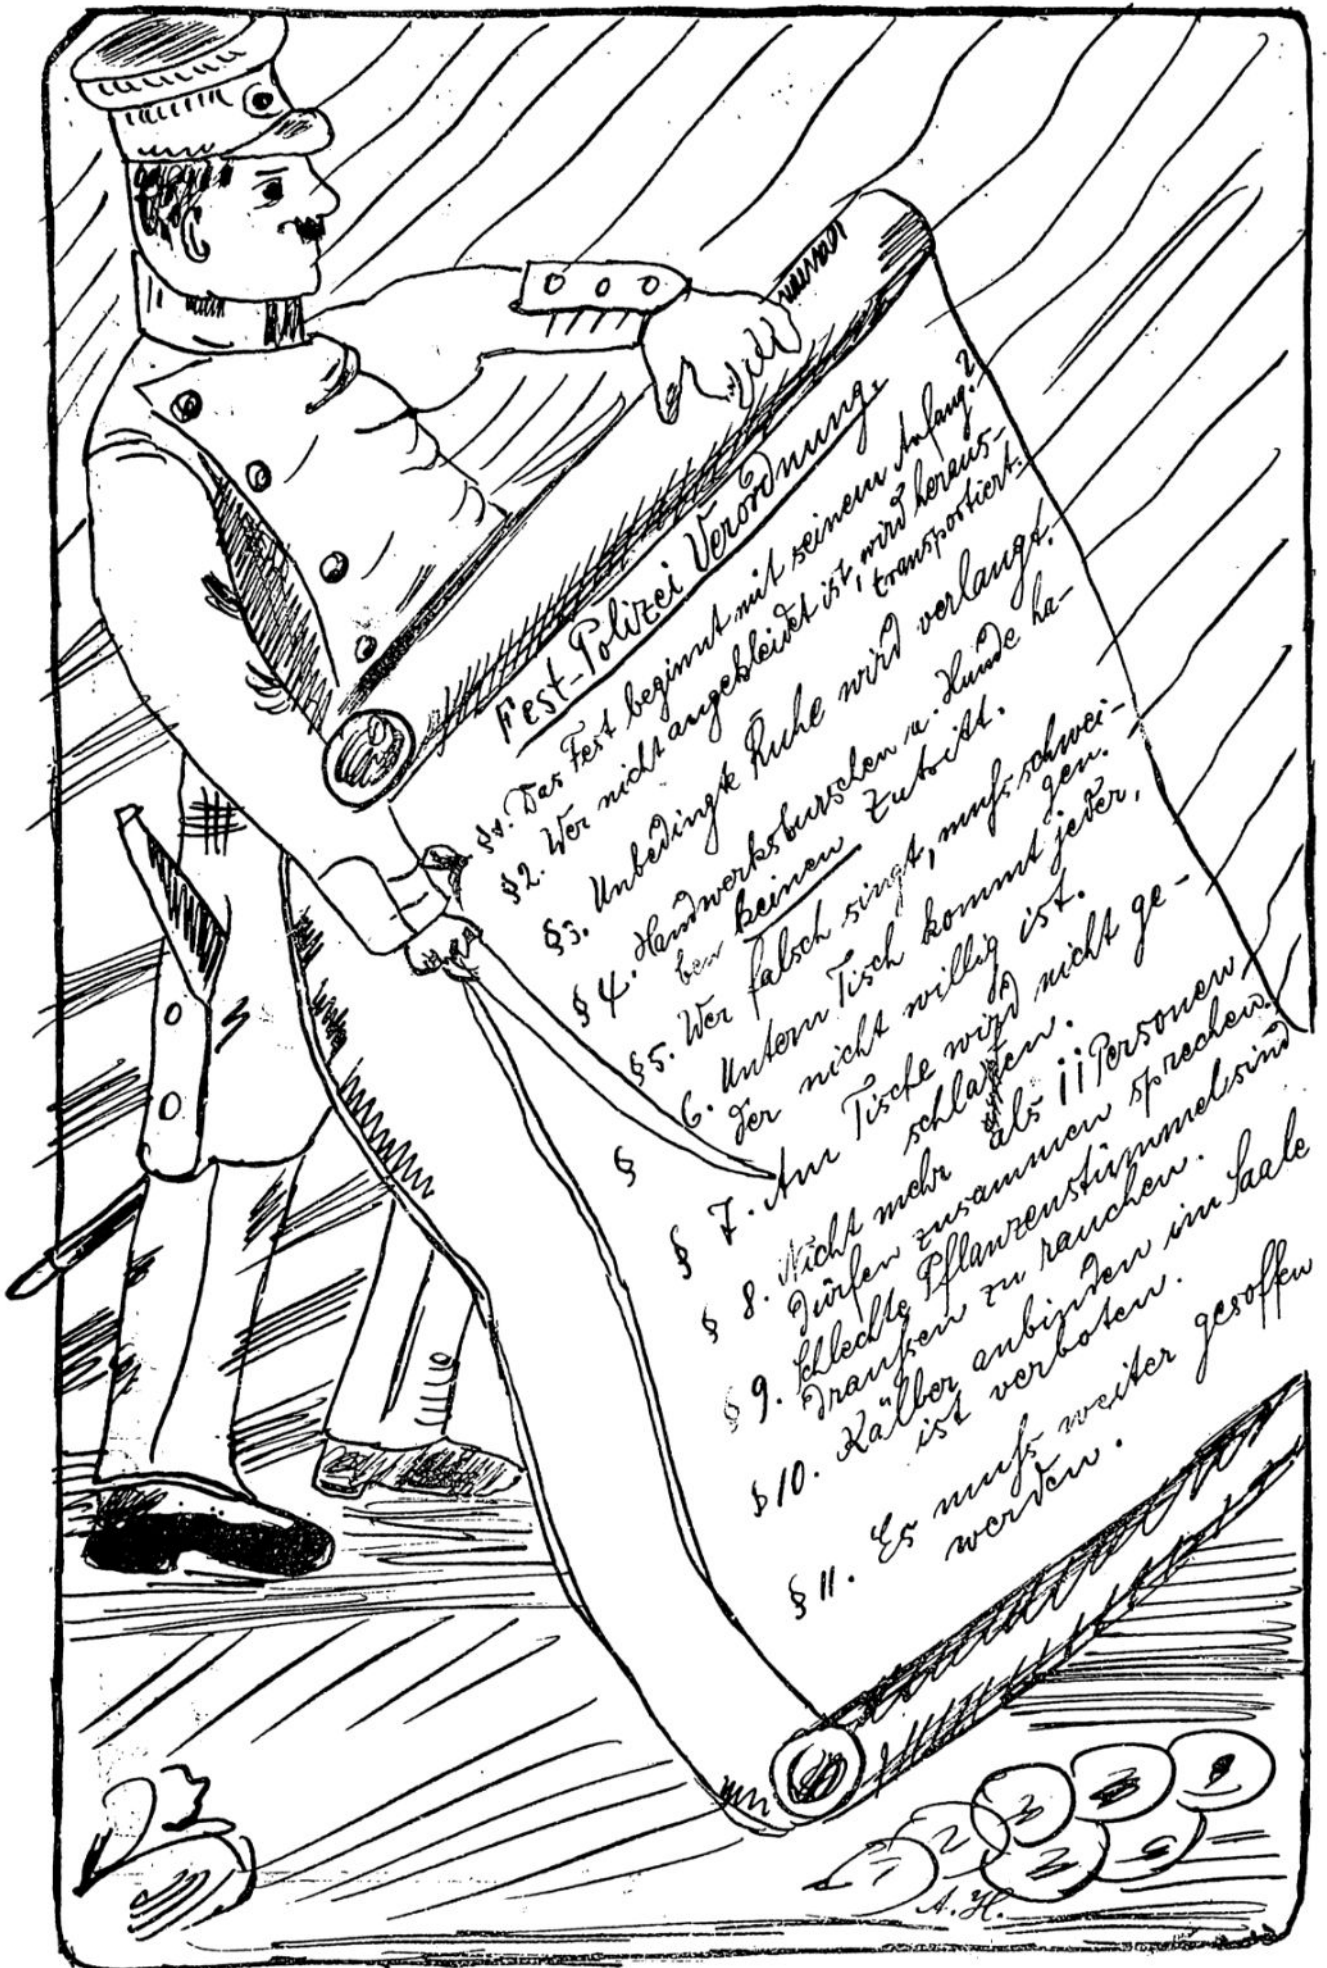 Fest-Polizei Verordnung.
§1. Das Fest beginnt mit seinem Anfang.
§2. Wer nicht angekleidet ist, wird heraus-
transportiert.
§3. Unbedingte Ruhe wird verlangt.
§ 4. Handwerksburschen u. Hunde ha-
ben keinen Zutritt.
§5. Wer falsch singt, muß schwei-
gen.
§ 6. Unterm Tisch kommt jeder,
der nicht willig ist.
§ 7. Am Tische wird nicht ge-
schlafen.
§ 8. Nicht mehr als 11 Personen
dürfen zusammen sprechen.
§ 9. Schlechte Pflanzenstümmel sind
draußen zu rauchen.
§ 10. Kälber anbinden im Saale
ist verboten.
§ 11. Es muß weiter gesoffen
werden.
A. H.